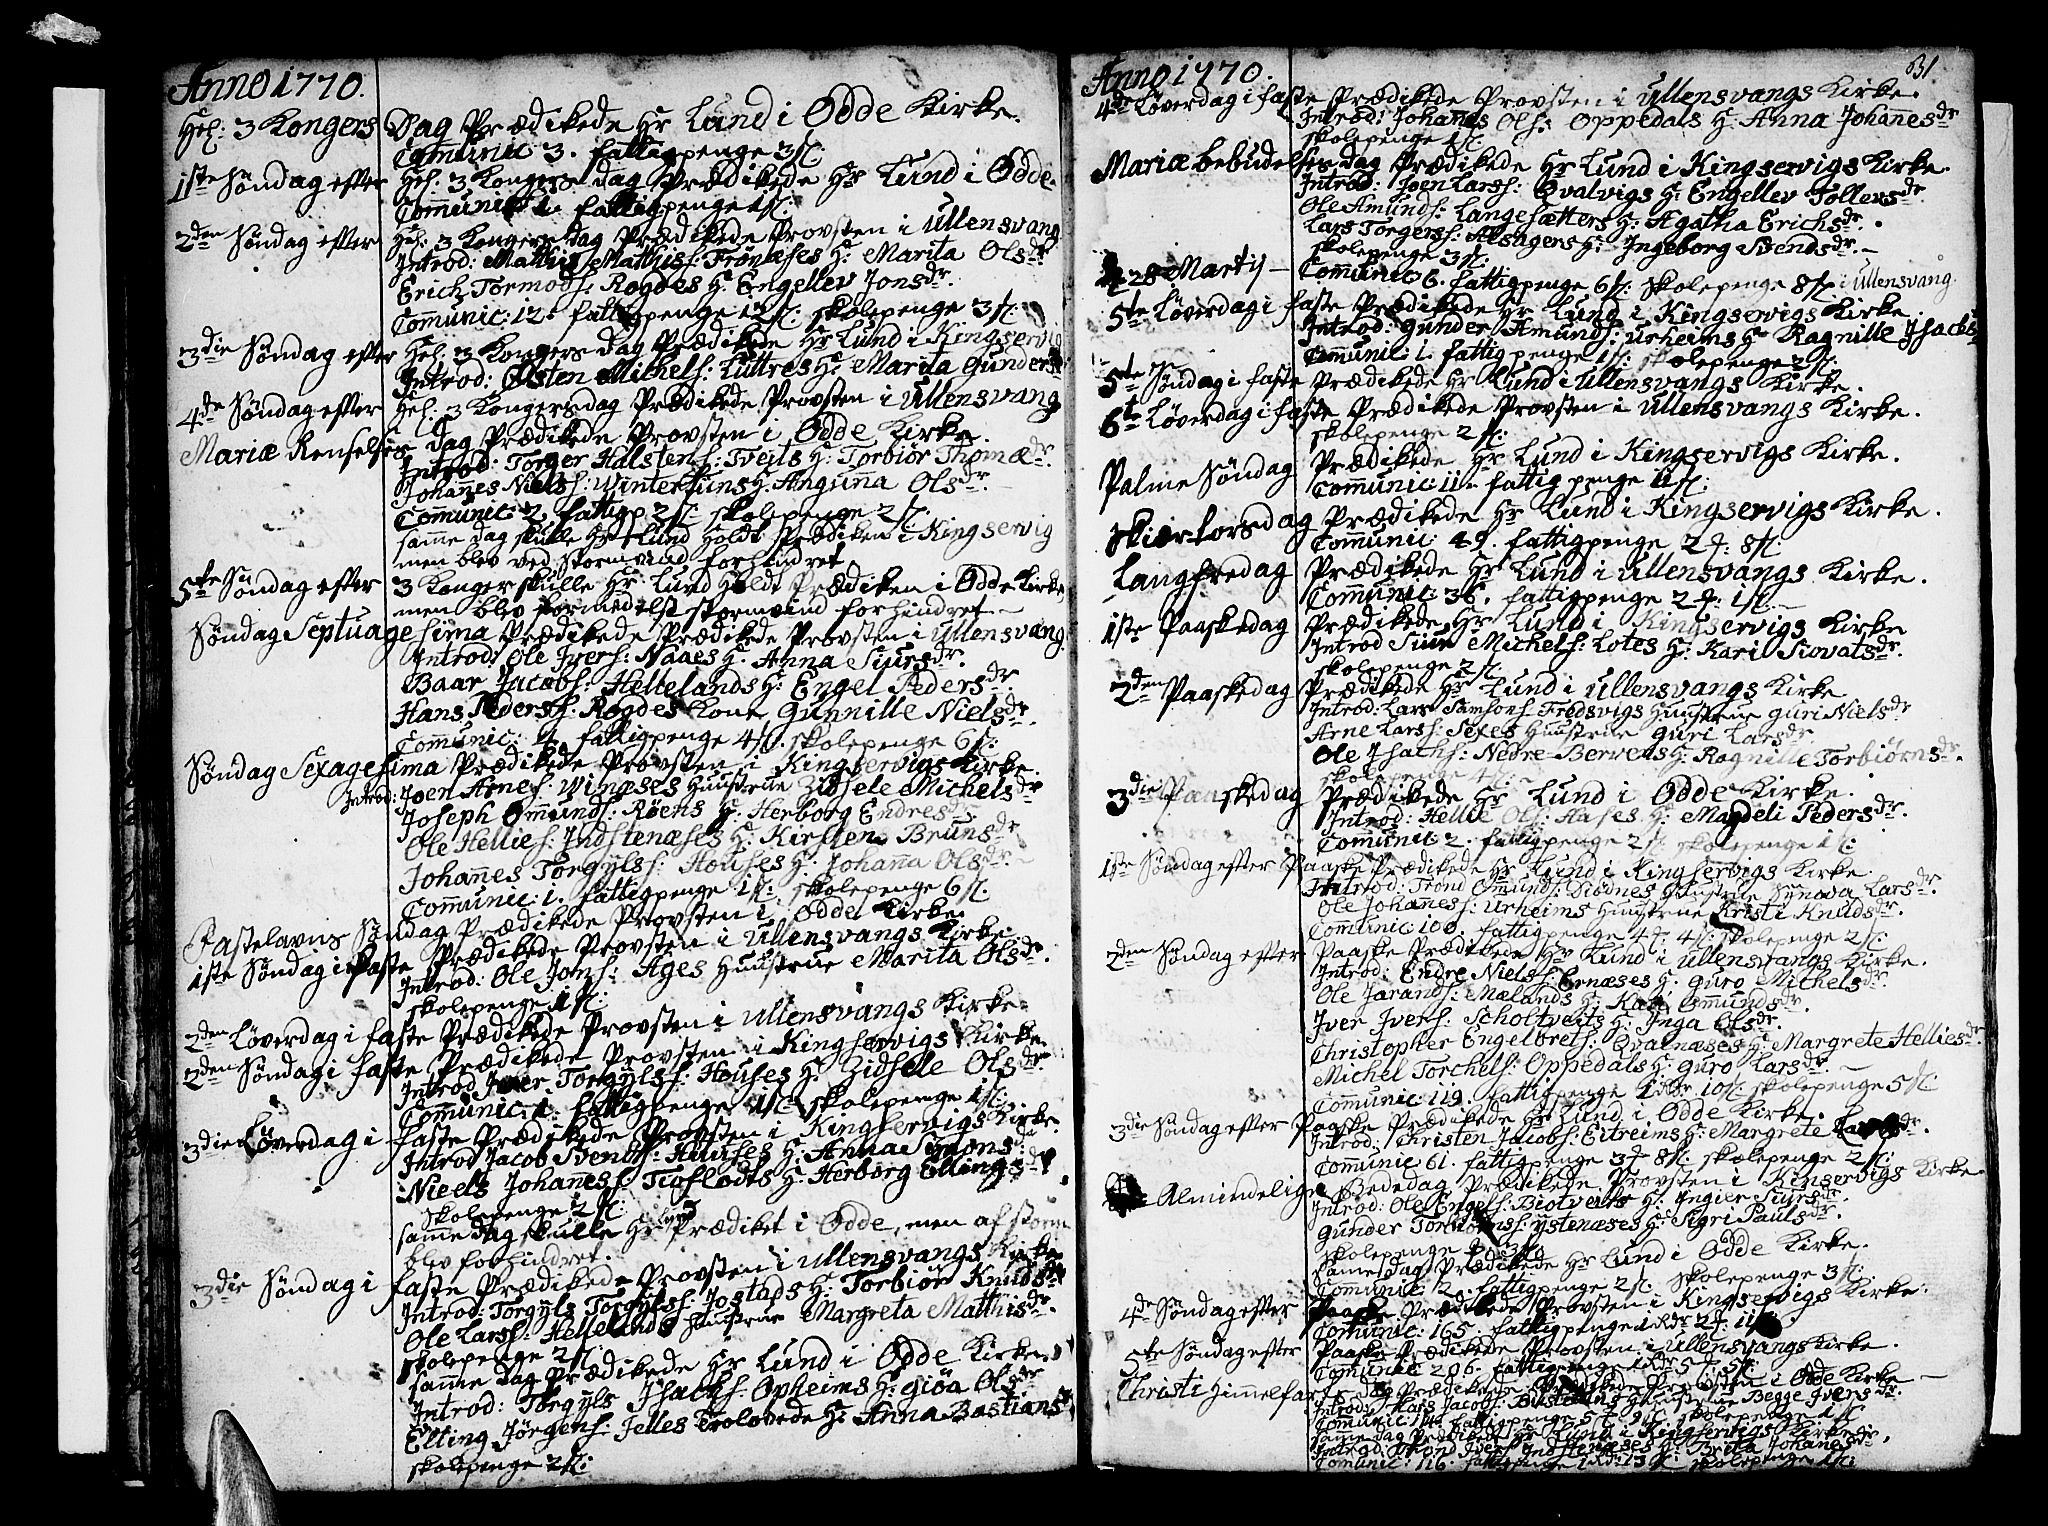 Anno 1770.
Hel: 3 Kongers Dag Prædikede Hr Lund i Odde Kirke.
Com̄unic 3. fattigpenge 3 sk:
1ste Søndag efter Hel. 3 Kongers dag Prædikede Hr Lund i Odde.
Com̄unic 1. fattigpenge 1 sk:
2den Søndag efter Hel: 3 Kongers dag Prædikede Provsten i Ullensvang
Introd: Mathis Mathis: Trønæses H: Marita Olsdr
Erich Tormods: Rogdes H: Engellev Jonsdr.
Com̄unic: 12. fattigpenge 12 sk: skolepenge 3 sk:
3die Søndag efter Hel: 3 Kongers dag Prædikede Hr Lund i Kingservig
Introd: Olsten Michels: Luttres H: Marita Gunders
4de Søndag efter Hel: 3 Kongersdag Prædikede Provsten i Ullensvang
Mariæ Renselses dag Prædikede Provsten i Odde Kirke.
Introd: Torger Halstens: Tveits H: Torbiør Thomædr.
Johan̄es Niels: Wintertuns H. Angun̄a Olsdr.
Com̄unic: 2. fattigp 2 sk: skolepenge 2 sk:
sam̄e dag skulle Hr Lund holdt Prædiken i Kingservig
men blev ved Stormvind forhindret
5te Søndag efter 3 Konger skulle Hr Lund holdt Prædiken i Odde Kirke,
men blev formedelst stormvind forhindret
Søndag Septuagesima Prædikede Prædikede Provsten i Ullensvang
Introd: Ole Ivers: Naaes H: Anna Siursdr.
Baar Jacobs: Hellelands H: Engel Pedersdr
Hans Peders: Rogdes Kone Gunnille Nielsdr.
Com̄unic: 4. fattigpenge 4 sk. skolepenge 6 sk:
Søndag Sexagesima Prædikede Provsten i Kingservigs Kirke.
Introd: Joen Arnes: Winæses Huustrue Zidsele Michelsdr
Joseph Om̄unds: Røens H: Herborg Endresdr
Ole Hellies: Indstenæses H: Kirsten Brunsdr
Johan̄es Torgyls: Houses H: Johan̄a Olsdr.
Com̄unic: 1. fattigpenge 1 sk: skolepenge 6 sk.
Fastelavns Søndag Prædikede Provsten i Odde Kirke.
1ste Søndag i Faste Prædikede Provsten i Ullensvangs Kirke
Introd: Ole Jons: Ages Huustrue Marita Olsdr.
skolepenge 1 sk:
2den Løverdag i faste Prædikede Provsten i Ullensvangs Kirke.
2den Søndag i faste Prædikede Provsten i Kingservigs Kirke.
Introd Iver Torgyls: Houses H: Zidsele Olsdr.
Com̄unic: 1. fattigpenge 1 sk: skolepenge 1 sk:
3die Løverdag i faste Prædikede Provsten i Kingservigs Kirke.
Introd Jacob Svends: Huuses H: Anna Simonsdr
Nieels Johanes: Tioflodts H: Herborg Ellingsdr
skolepenge 2 sk:
sam̄e dag skulle Hr Lund Prædiket i Odde, men af storm
blev forhindret.
3die Søndag i faste Prædikede Provsten i Ullensvangs Kirke
Introd: Torgyls Torgyls: Jostads H: Torbiør Knudsdr
Ole Lars: Hellelands Huustrue Margreta Matthisdr.
skolepenge 2 sk:
sam̄e dag Prædikede Hr Lund i Odde Kirke.
Introd: Torgyls Isachs: Opheims H: Giøa Olsdr
Elling Jørgens: Jelles Trolovede H: Anna Bastians
skolepenge 2 sk:
31
Anno 1770.
4de Løverdag i faste Prædikede Provsten i Ullensvangs Kirke.
Introd: Johan̄es Ols: Oppedals H: Anna Johan̄esdr
skolepenge 1 sk:
Mariæ bebudelses dag Prædikede Hr Lund i Kingservigs Kirke.
Introd: Joen Lars: Qvalvigs H: Engellev Tollersdr.
Ole Amunds: Langesætters H: Agatha Erichsdr.
Lars Torgers: Alsagers H: Ingeborg Svendsdr.
skolepenge 3 sk:
28 Martij Com̄unic 6. fattigpenge 6 sk: Skolepenge 8 sk: i Ullensvang
5te Løverdag i faste Prædikede Hr Lund i Kingservigs Kirke.
Introd: Gunder Amunds: Urheims H: Ragnille Isachs
Com̄unic: 1. fattigpenge 1 sk: skolepenge 2 sk:
5te Søndag i faste Prædikede Hr Lund i Ullensvangs Kirke.
6te Løverdag i faste Prædikede Provsten i Ullensvangs Kirke.
skolepenge 2 sk:
Palme Søndag Prædikede Hr Lund i Kingservigs Kirke.
Com̄unic: 11. fattigpenge 11 sk:
Skiær-torsdag Prædikede Hr Lund i Kingservigs Kirke.
Com̄unic: 49. fattigpenge 2 d: 8 sk
Langfredag Prædikede Hr Lund i Ullensvangs Kirke.
Com̄unic: 36. fattigpenge 2 d: 1 sk
1ste Paaskedag Prædikede Hr Lund i Kingservigs Kirke
Introd Siur Michels: Lotes H: Kari Siovatsdr.
skolepenge 2 sk:
2den Paaskedag Prædikede Hr Lund i Ullensvangs Kirke
Introd: Lars Samsons Fredsvigs Huustrue Guri Nielsdr
Arne Lars: Sexes Huustrue Guri Larsdr
Ole Isachs: Nedre-Berven̄s H: Ragnille Torbiørnsdr.
skolepenge 4 sk:
3die Paaskedag Prædikede Hr Lund i Odde Kirke.
Introd: Hellie Ols: Hases H: Magdeli Pedersdr.
Com̄unic 2. fattigpenge 2 sk: skolepenge 1 sk:
1ste Søndag efter Paaske Prædikede Hr Lund i Kingservigs Kirke
Introd: Trond Om̄unds: Diødnes Huustrue Synova Larsdr.
Ole Johanes: Urheims Huustrue Kristi Knudsdr.
Com̄unic 100. fattigpenge 4 d 4 sk: skolepenge 2 sk:
2den Søndag efter Paaske Prædikede Hr Lund i Ullensvangs Kirke.
Introd: Endre Niels: Ernæses H: Guro Michelsdr.
Ole Jarands: Mælands H: Kari Om̄undsdr.
Iver Ivers: Scholtveits H: Inga Olsdr.
Christopher Engelbrets: Qvalnæses H: Margrete Helliesdr
Michel Torchels: Oppedals H: Guro Larsdr.
Com̄unic: 119. fattigpenge 1 Rdr. 10 sk: skolepenge 5 sk
3die Søndag efter Paaske Prædikede Hr Lund i Odde Kirke.
Introd: Christen Jacobs: Eitreims H: Margrete Larsdr.
Com̄unic 61. fattigpenge 3 d 8 sk: skolepenge 2 sk:
Almindelig Bededag Prædikede Provsten i Kinservigs Kirke
Introd: Ole Engels: Biotveits H: Ingier Siursdr.
Gunder Torbiøns: Ystenæses H: Sigri Paulsdr.
skolepenge
Sam̄e dag Prædikede Hr Lund i Odde Kirke.
Com̄unic 12. fattigpenge 2 sk: skolepenge 3 sk:
4de Søndag efter Paaske Prædikede Provsten i Kingservigs Kirke.
Com̄unic: 165. fattigpenge 1 Rdr 2 d: 11
5te Søndag efter Paaske Prædikede Provsten i Ullensvangs Kirke.
Com̄unic 206. fattigpenge 1 Rdr 5 d 5 sk:
Christi Himmelfarts dag Prædikede Provsten i Odde Kirke
Introd: Lars Jacobs: Bustetuns Huustrue Begge Iversdr.
Com̄unic 142 fattigpenge 5 d 9 sk: skolepenge 1 sk
sam̄e dag Prædikede Hr Lund i Kingservigs Kirke
Introd: Trond Ivers: Indstenæses H: Brita Johan̄esdr.
Com̄unic: 116. fattigpenge 1 Rdr 13 sk skolepenge 1 sk: